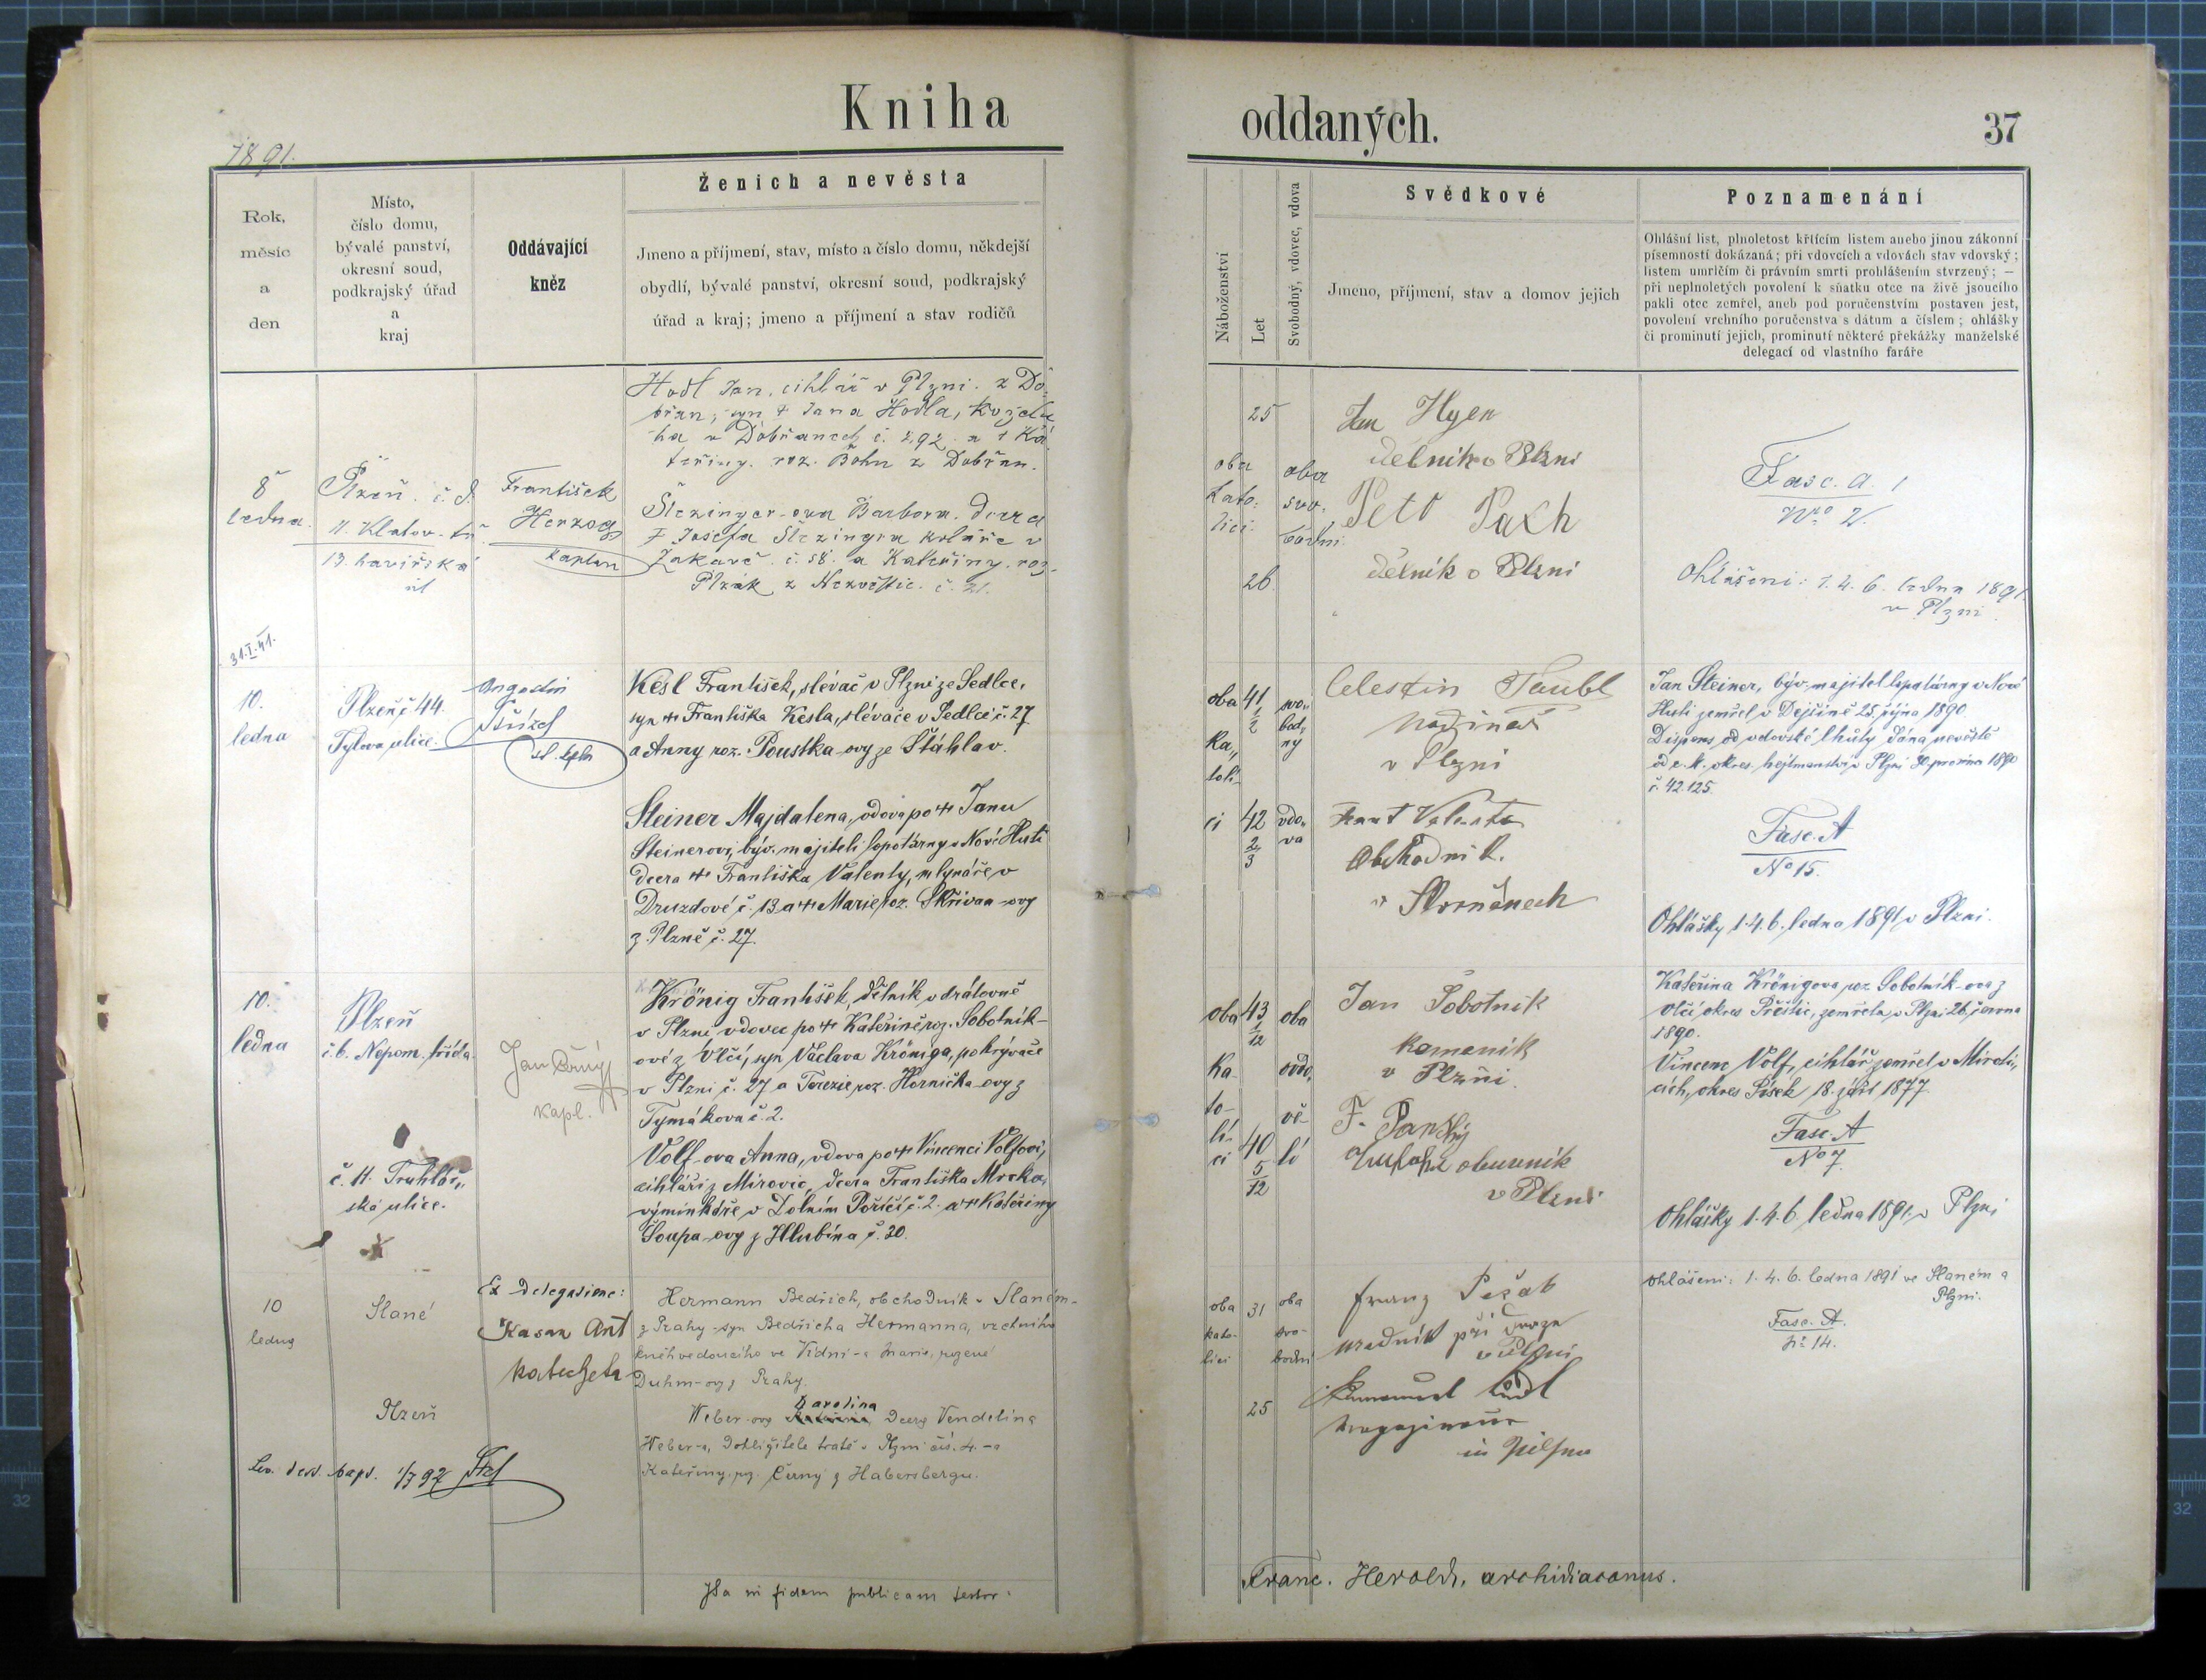 Kniha oddaných.
37
1891.
Rok,
měsíc
a
den
Místo,
číslo domu,
bývalé panství,
okresní soud,
podkrajský úřad
a
kraj
Oddávající
kněz
Ženich a nevěsta
Jmeno a příjmení, stav, místo a číslo domu, někdejší
obydlí, bývalé panství, okresní soud, podkrajský
úřad a kraj; jmeno a příjmení a stav rodičů
Náboženství
Let
Svobodný, vdovec, vdova
Svědkové
Jmeno, příjmení, stav a domov jejich
Poznamenání
Ohlášní list, plnoletost křtícím listem anebo jinou zákonní
písemností dokázaná; při vdovcích a vdovách stav vdovský;
listem umrlčím či právním smrti prohlášením stvrzený; —
při neplnoletých povolení k sňatku otce na živě jsoucího
pakli otec zemřel, aneb pod poručenstvím postaven jest,
povolení vrchního poručenstva s dátum a číslem; ohlášky
či prominutí jejich, prominutí některé překážky manželské
delegací od vlastního faráře
8
ledna.
Plzeň. č. d.
11. Klatov. tř.
13. havířská
ul
František
Herzog
kaplan
Hodl Jan, cihlář v Plzni. z Do-
břan, syn † Jana Hodla, koželu
ha v Dobřanech č. 292 a † Ka
teřiny. roz. Böhm z Dobřan.
Barbora. dcera
† Josefa koláře v
č. 58. a Kateřiny. roz.
Plzák z Nezvěstic. č. 21.
oba
kato-
líci
25
26
oba
svo-
bodni
Jan Hyen
dělník v Plzni
Petr Pach
dělník v Plzni
Fasc. A. 1
No 2.
Ohlášeni: 1. 4. 6. ledna 1891.
v Plzni
31.I.41.
10.
ledna
Plzeň č 44.
Tylova ulice.
st. kpln
Kesl František, slévač v Plzni ze Sedlce,
syn † Františka Kesla, slévače v Sedlci č. 27
a Anny roz. Poustka-ovy ze Šťáhlav.
Steiner Majdalena, vdova po † Janu
Steinerovi, býv. majiteli lopatárny v Nové Huti
dcera † Františka Valenty, mlynáře v
Druzdové č. 13 a † Marie roz. Skřivan-ovy
z Plzně č. 27.
oba
ka„
toli-
ci
41
1/2
42
2/3
svo„
bod„
ný
vdo„
va
Celestin Taubl
hodinář
v Plzni
Frant Valenta
Obchodník.
v
Jan Steiner, býv. majitel lopatárny v Nové
Huti zemřel v Dejšině 25. října 1890.
Dispens od vdovské lhůty dána nevěstě
od c. k. okres. hejtmanství v Plzni 30. prosince 1890
č. 42.125.
Fasc. A
No 15.
Ohlášky 1. 4. 6. ledna 1891 v Plzni.
10.
ledna
Plzeň
č. 6. Nepom. třída.
č. 11. Truhlář„
ská ulice.
Jan Černý
kapl.
Krönig František, dělník v drátovně
v Plzni vdovec po † Kateřině roz. Sobotník-
ové z Vlčí, syn Václava Kröniga, pokrývače
v Plzni č. 27 a Terezie roz. Hornička-ovy z
Tymákova č. 2.
Volf-ova Anna, vdova po † Vincenci Volfovi,
cihláři z Mirovic, dcera Františka Mrska,
výminkáře v Dolním Poříčí č. 2. a † Kateřiny
Šoupa-ovy z Hlubína č. 30.
oba
ka-
to-
lí-
ci
43
1/12
40
5/12
oba
ovdo„
vě-
lí
Jan Sobotnik
kameník
v Plzňi.
F. Panský
obuvník
v Plzni
Kateřina Krönigova roz Sobotník-ova z
Vlčí okres Přeštic, zemřela v Plzni 26. června
1890.
Vincenc Volf, cihlář zemřel v Miroti„
cích, okres Písek 18. září 1877.
Fasc. A
No 7.
Ohlášky 1. 4. 6. ledna 1891. v Plzni
10
ledna
Slané
Plzeň
Ex delegatione:
Kasan Ant
katecheta
Hermann Bedřich, obchodník v Slaném-
z Prahy-syn Bedřicha Hermanna, vrchního
knihvedoucího ve Vídni-a Marie, rozené
Duhm-ovy z Prahy.
Karolina
Weber-ovy dcery Vendelina
Weber-a, dohližitele tratě v Plzni čís. 4.-a
Kateřiny, roz. Černý z Habersbergu.
oba
kato-
líci
31
25
oba
svo-
bodni
Franz Pešab
uředník při
v Plzni
in Pilsen
Ohlášeni: 1. 4. 6. ledna 1891 ve Slaném a
Plzni.
Fasc. A.
No 14.
1/7 92
Ita in fidem publicam testor:
Franc. Herold, archidiaconus.